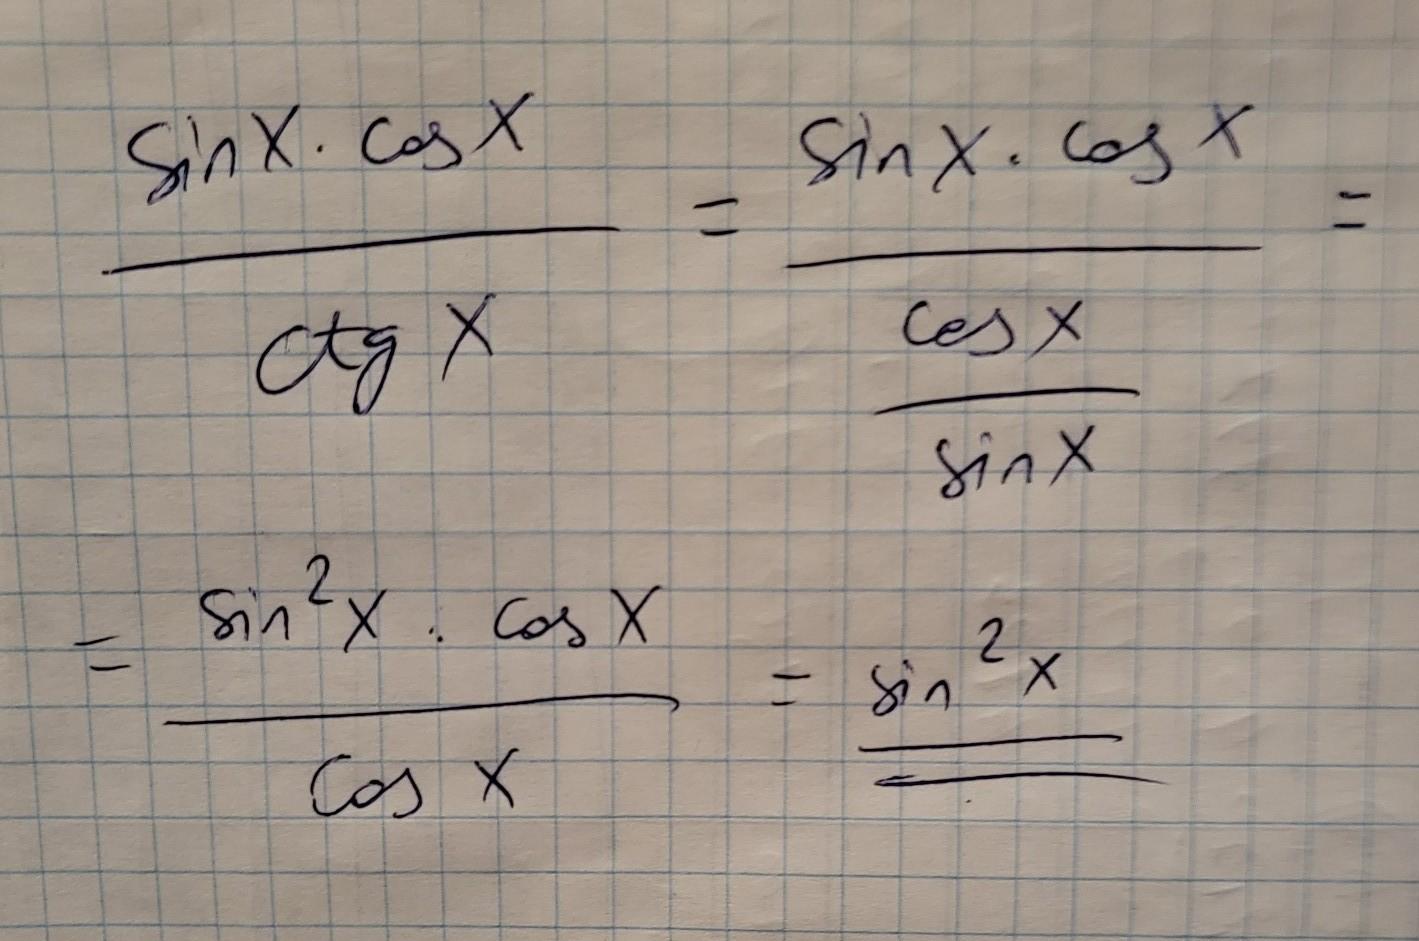 sin x · cos x / ctg x = sin x · cos x / (cos x / sin x) =
= sin²x · cos x / cos x = sin²x